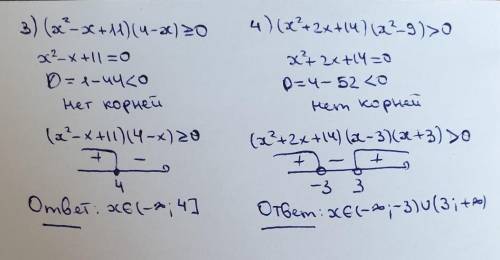 3) (x²-x+11)(4-x)≥0
x²-x+11=0
D=1-44<0
Нет корней
(x²-x+11)(4-x)≥0
+ -
4
Ответ: x∈(-∞; 4]
4) (x²+2x+14)(x²-9)>0
x²+2x+14=0
D=4-52<0
Нет корней
(x²+2x+14)(x-3)(x+3)>0
+ - +
-3 3
Ответ: x∈(-∞;-3)∪(3;+∞)